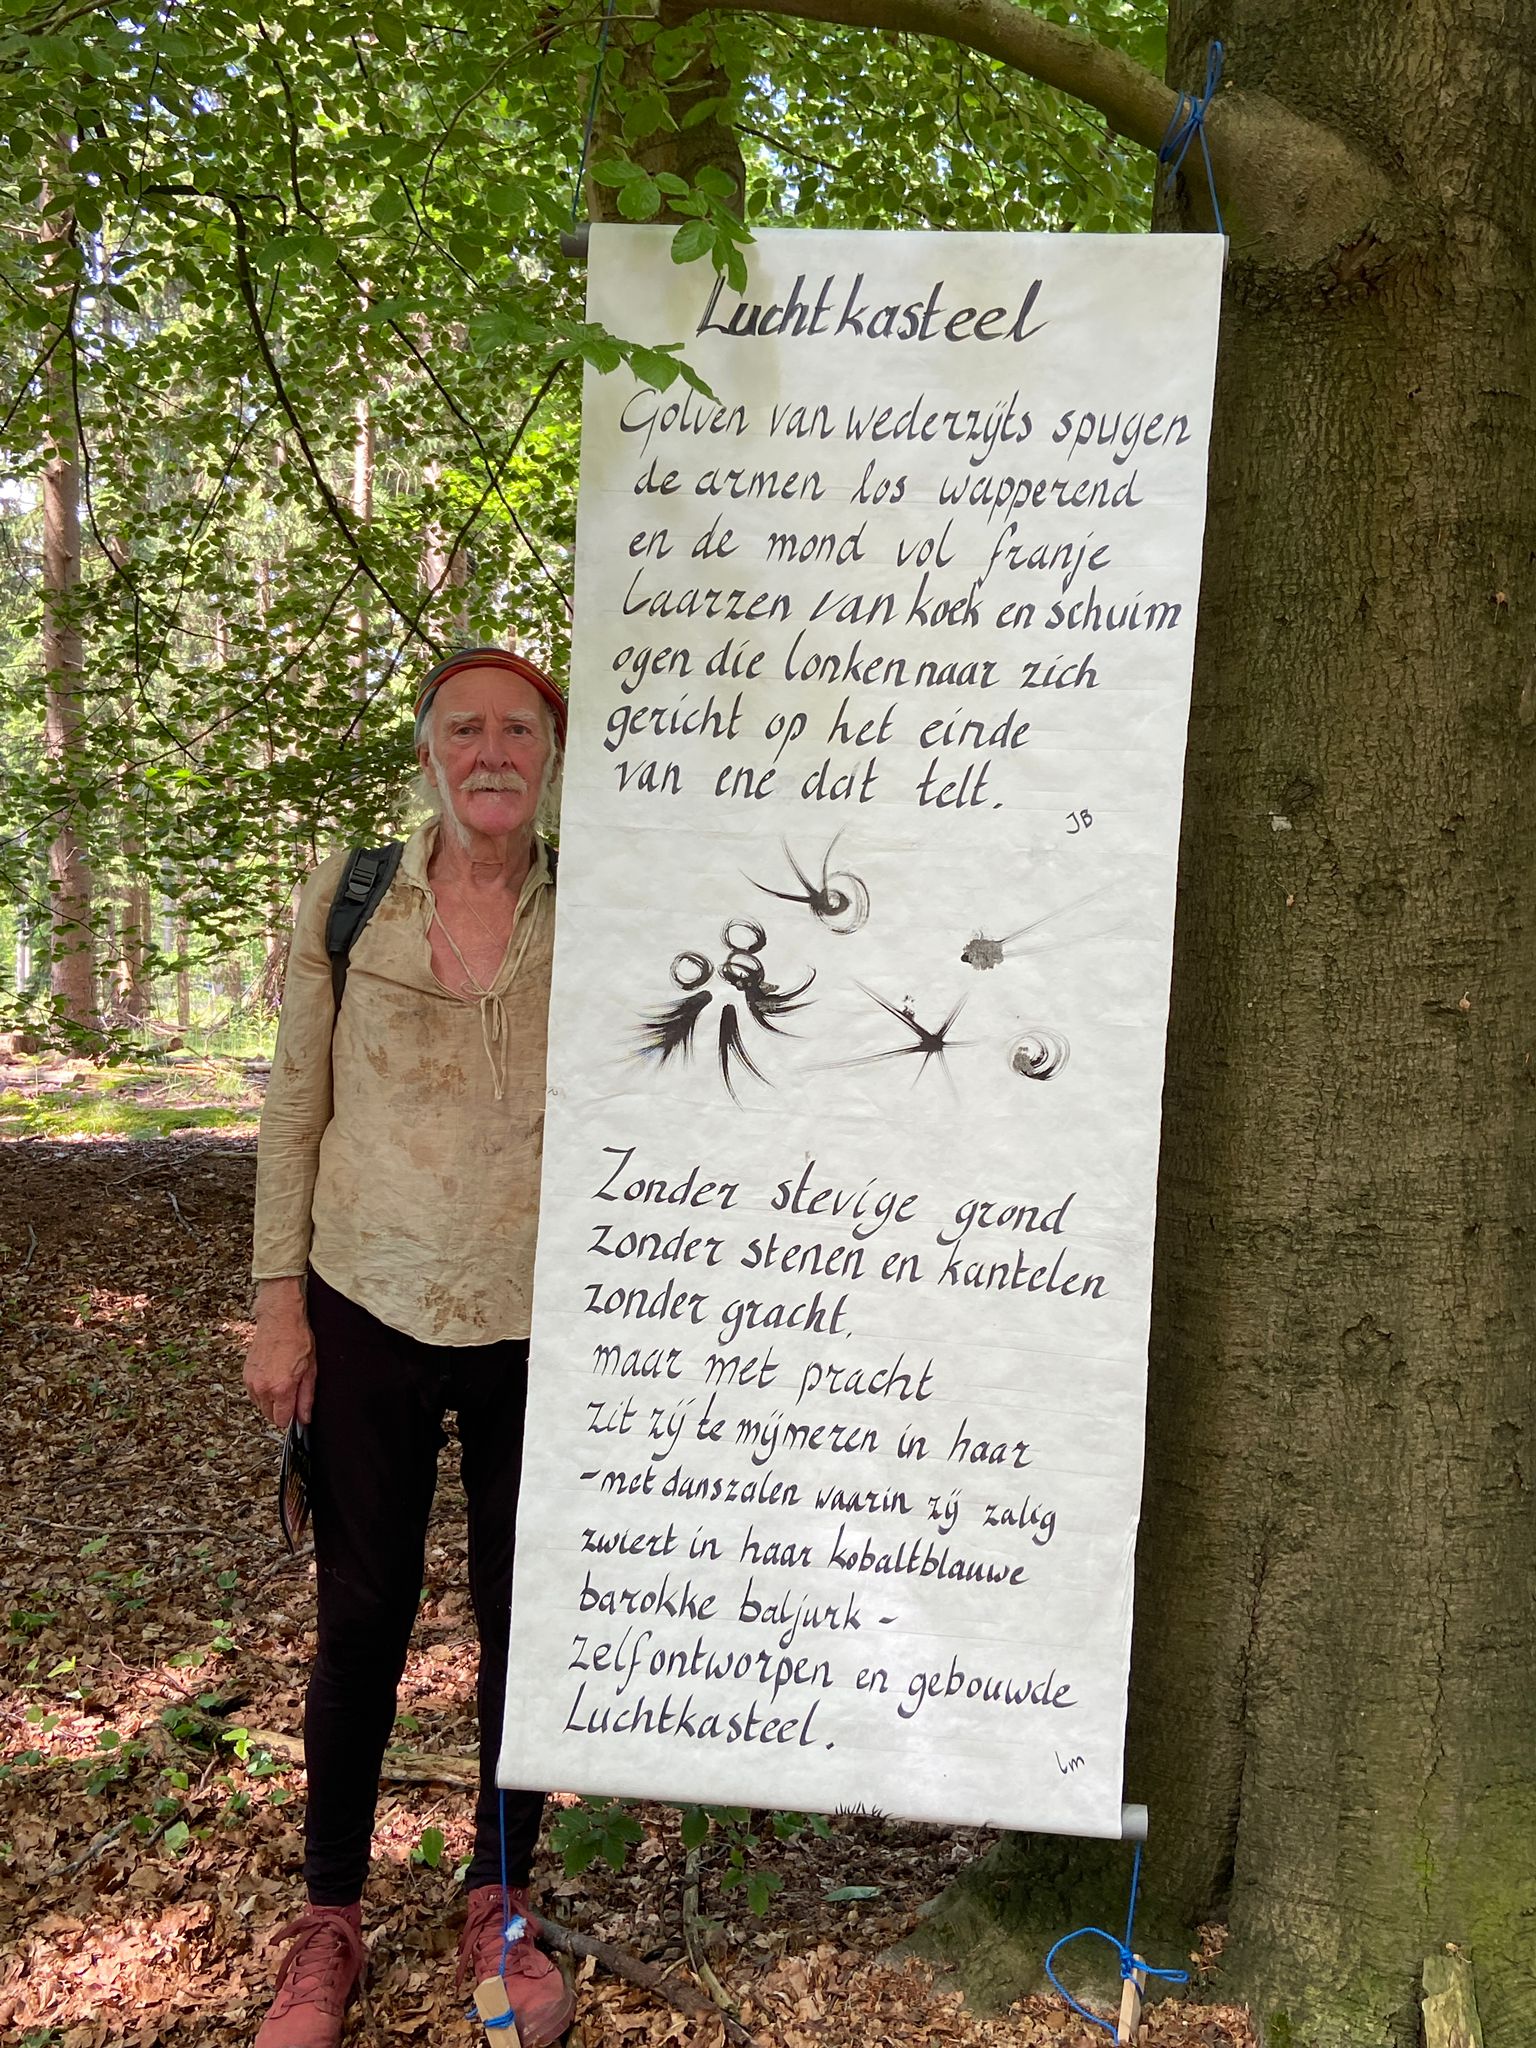 Luchtkasteel
Golven van wederzijts spugen
de armen los wapperend
en de mond vol franje
Laarzen van koek en schuim
ogen die lonken naar zich
gericht op het einde
van ene dat telt.
JB
Zonder stevige grond
zonder stenen en kantelen
zonder gracht,
maar met pracht
zit zij te mijmeren in haar
-met danszalen waarin zij zalig
zwiert in haar kobaltblauwe
barokke baljurk -
zelfontworpen en gebouwde
Luchtkasteel.
lm